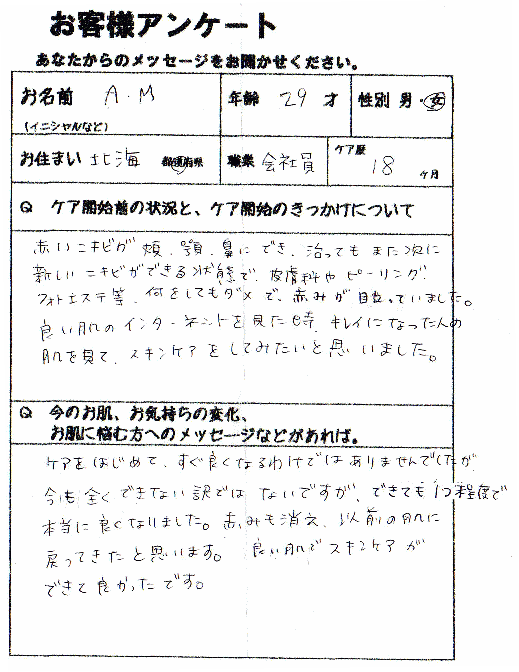 お客様アンケート
あなたからのメッセージをお聞かせください。
お名前 A.M 年齢 29 才 性別 男・女
(イニシャルなど)
お住まい 北海 都道府県 職業 会社員 ケア歴 18 ヶ月
Q ケア開始前の状況と、ケア開始のきっかけについて
赤いニキビが 頬、顎、鼻にでき、治っても また次に
新しい ニキビができる状態で、皮膚科や ピーリング、
フォトエステ等、何をしてもダメで、赤みが目立っていました。
良い肌のインターネットを見た時、キレイになった人の
肌を見て、スキンケアをしてみたいと思いました。
Q 今のお肌、お気持ちの変化、
お肌に悩む方へのメッセージなどがあれば。
ケアをはじめて、すぐ良くなるわけではありませんでしたが
今も全くできない訳では ないですが、できても1つ程度で
本当に良くなりました。赤みも消え、以前の肌に
戻ってきたと思います。 良い肌でスキンケアが
できて良かったです。